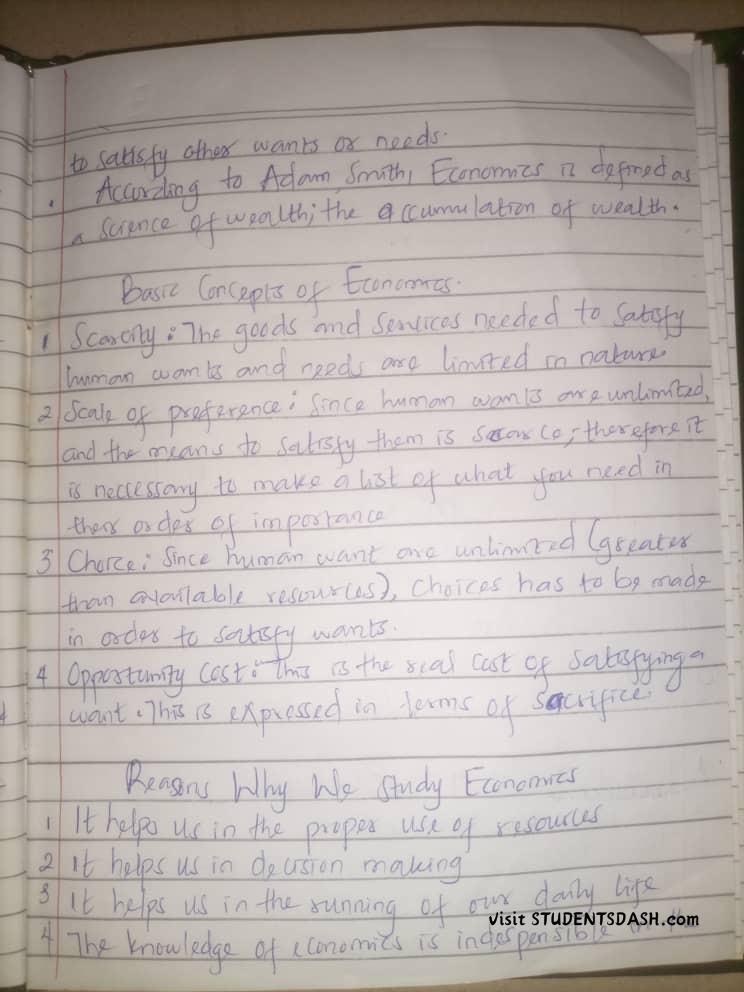 to satisfy other wants or needs.
. According to Adam Smith, Economics is defined as
a science of wealth; the accumulation of wealth.
Basic Concepts of Economics.
1 Scarcity: The goods and services needed to satisfy
human wants and needs are limited in nature
2 Scale of preference: Since human wants are unlimited,
and the means to satisfy them is scarce, therefore it
is neccessary to make a list of what you need in
their order of importance
3 Choice: Since human want are unlimited (greater
than available resources), choices has to be made
in order to satisfy wants.
4 Opportunity Cost: This is the real cost of satisfying a
want. This is expressed in terms of sacrifice.
Reasons Why We Study Economics
1 It helps us in the proper use of resources
2 It helps us in decision making
3 It helps us in the running of our daily life
Visit STUDENTSDASH.com
4 The knowledge of economics is indespensible